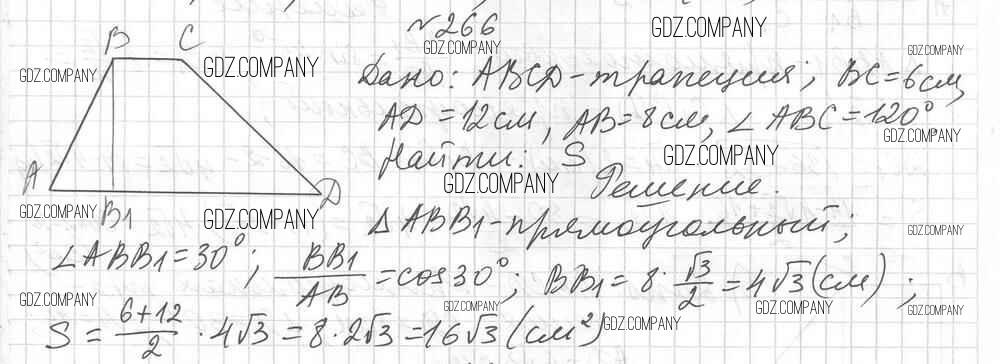 №266
GDZ.COMPANY GDZ.COMPANY GDZ.COMPANY
B C
GDZ.COMPANY GDZ.COMPANY
Дано: ABCD - трапеция; BC = 6 см,
AD = 12 см, AB = 8 см, ∠ ABC = 120°.
GDZ.COMPANY
Найти: S
GDZ.COMPANY GDZ.COMPANY
Решение.
A D
B1
GDZ.COMPANY GDZ.COMPANY GDZ.COMPANY
Δ ABB1 - прямоугольный;
∠ABB1 = 30°; BB1/AB = cos 30°; BB1 = 8 · √3/2 = 4√3 (см);
GDZ.COMPANY GDZ.COMPANY GDZ.COMPANY GDZ.COMPANY
S = (6+12)/2 · 4√3 = 8 · 2√3 = 16√3 (см²)